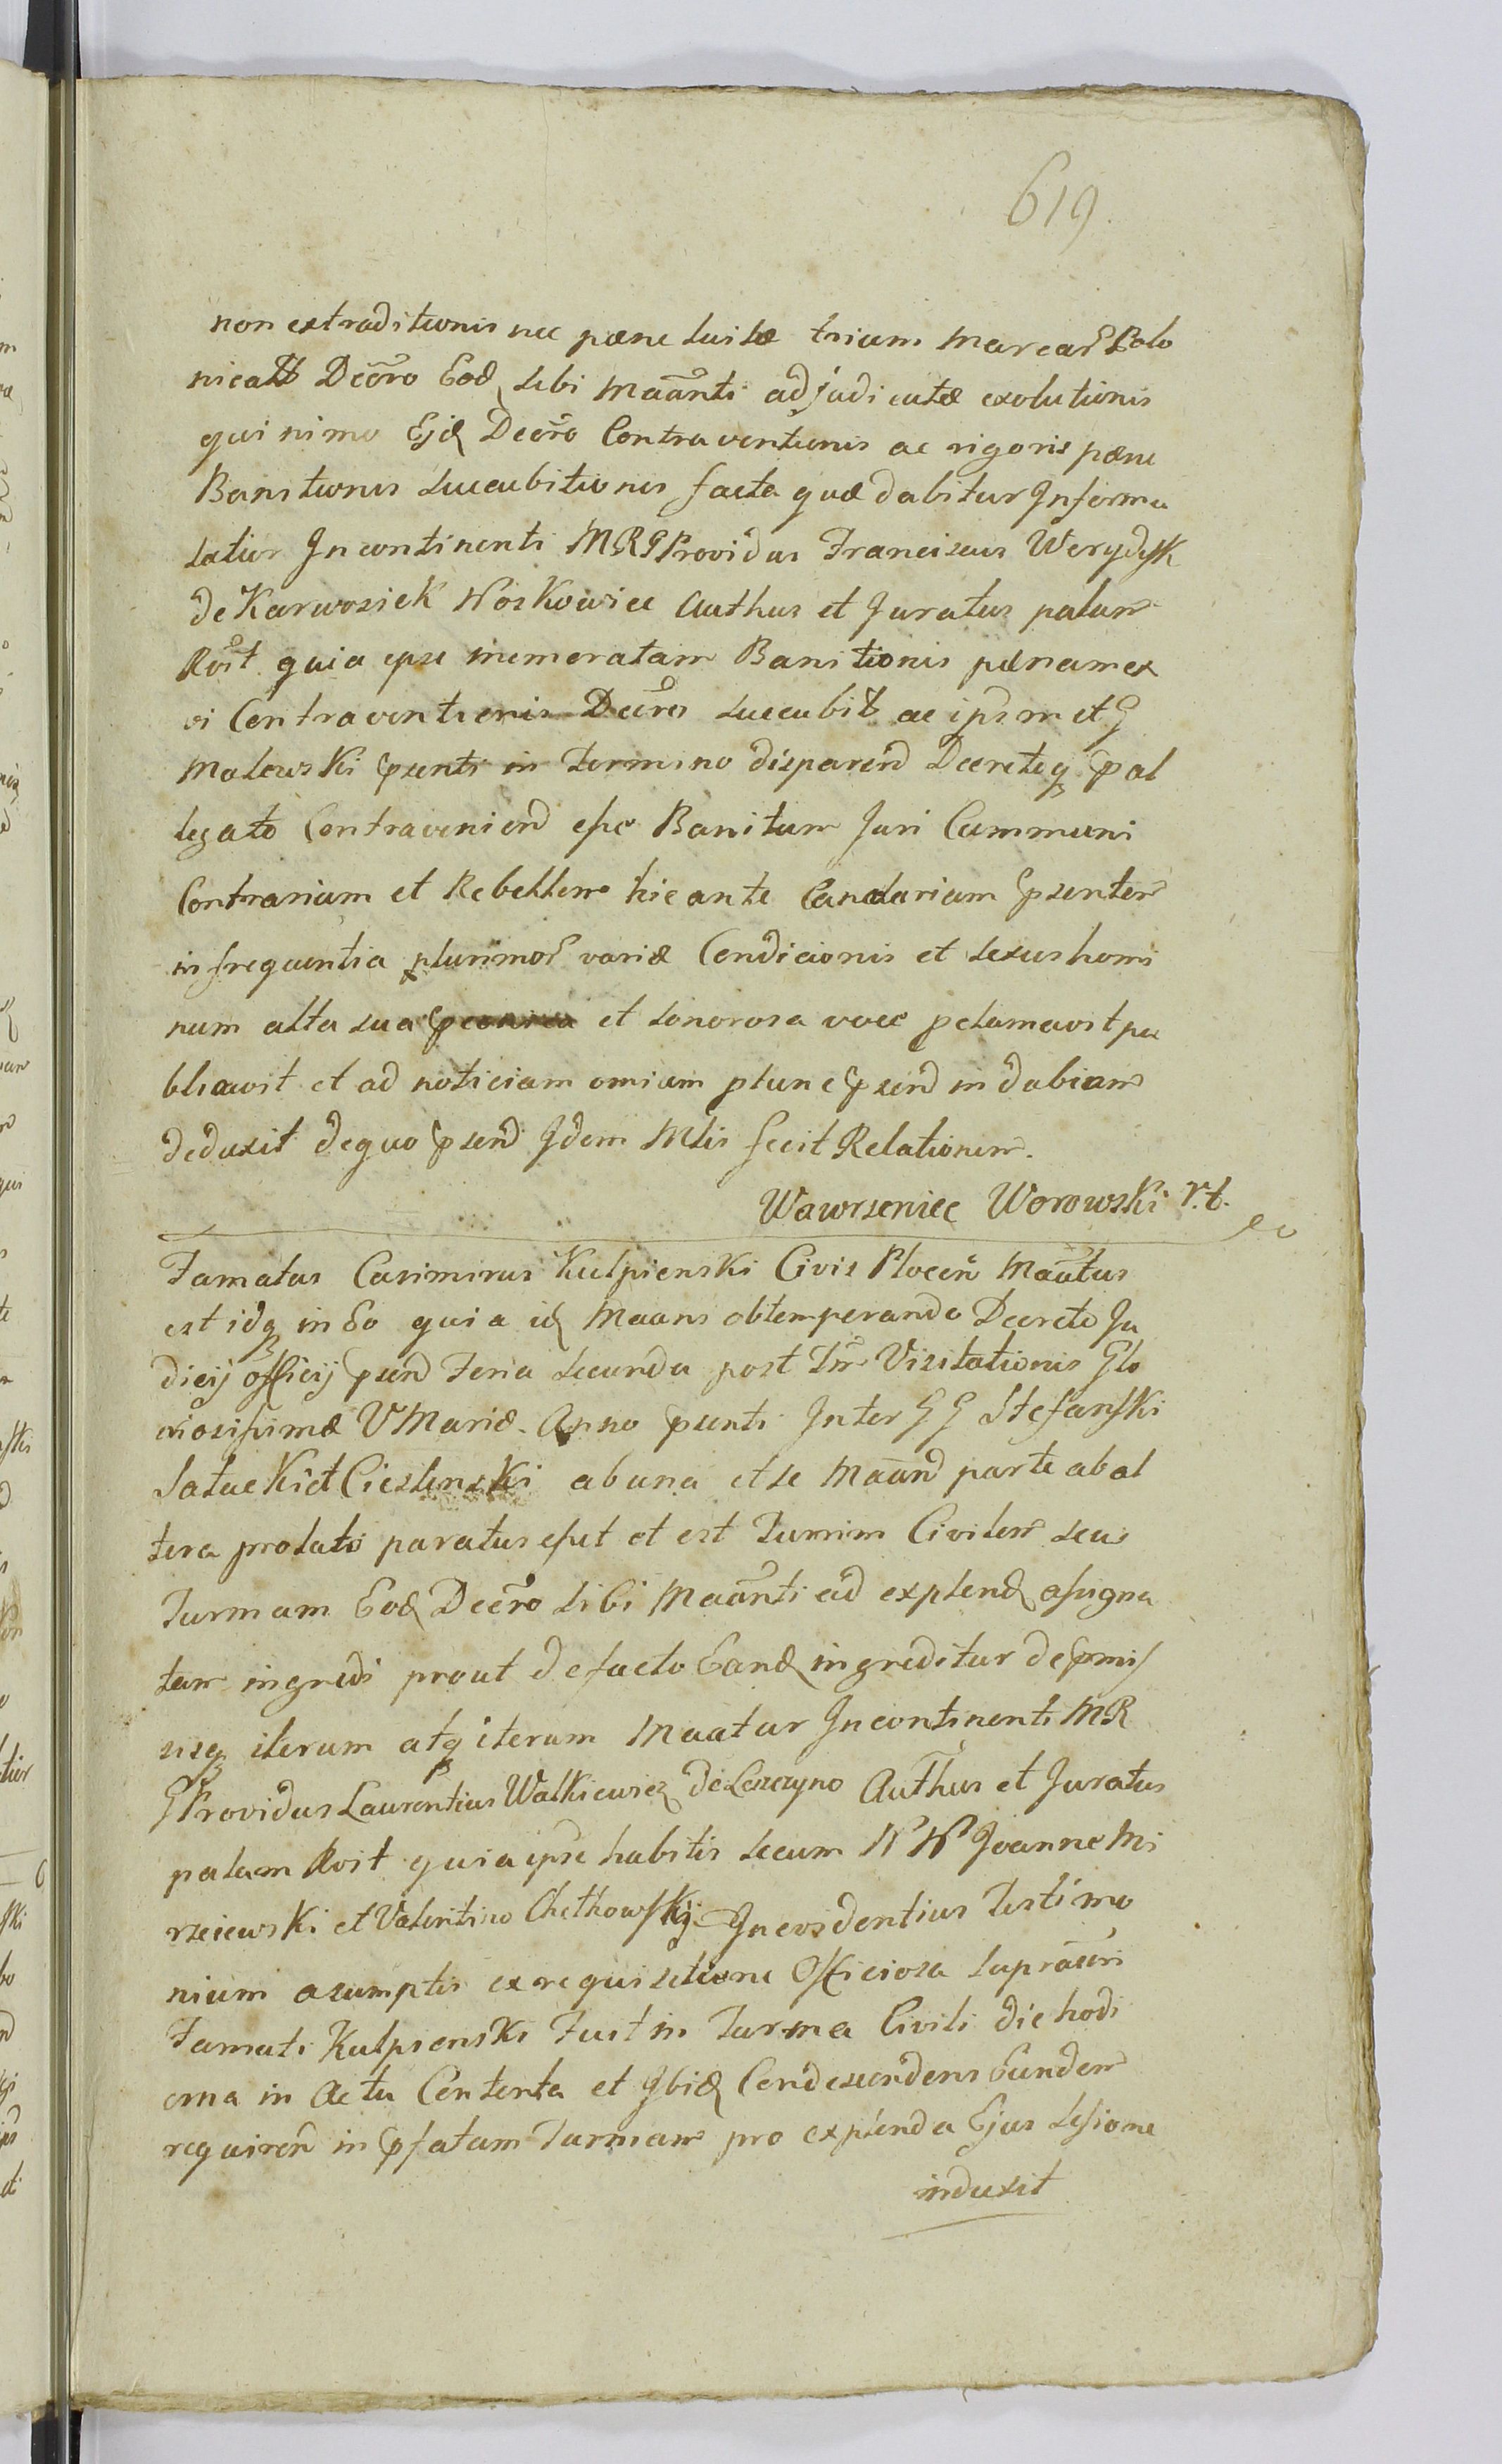 619.
non extraditionis nec pænæ luitæ trium Marcar Polo
nicall Decro Eod sibi Maanti adjudicatæ exolutionis
qui nimo Ejd Decro Contraventionis ac rigoris pænæ
Banitionis succubitionis facta quæ dabitur Informa
latior Incontinenti MRG Providus Franciscus
de Karwosiek Noskowice Authus et Juratus palam
Roit quia ipse memoratam Banitionis pænam ex
vi Contraventionis Decro succubit ac ipsm et G
Malewski psenti in termino disparend Decretoq p al
legato Contraveniend esse Banitum Juri Cummuni
Contrarium et Rebellem hic ante Cancelariam psentem
in frequentia plurimor variæ Condicionis et sexus homi
num alta sua et sonorosa voce pclamavit pu
blicavit et ad noticiam omium plane psend indubiam
deduxit de quo psend Idem Mlis fecit Relationem.
Wawrzeniec Worowski r.t.
Famatus Casimirus Kulpienski Civis Plocen Maatus
est idq in Eo quia id Maans obtemperando Decreto Ju
dicij officij psend Feria secunda post Fm Visitationis Glo
riosissimæ V Mariæ Anno psenti Inter GG Stefanski
Satacki et Cieslenski ab una et se Maand parte ab al
tera prolato paratus esset et est Turrim Civilem seu
Turmam Eod Decro sibi Maanti ad explend assigna
tam ingredi prout de facto Eand ingreditur de pmis
sisq iterum atq iterum Maatur Incontinenti MR
G Providus Laurentius Walkiewicz de Authus et Juratus
palam Roit quia ipse habitis secum N N Joanne Mi
rzeiewski et Valentino Chelkowskj In evidentius Testimo
nium asumptis ex requisitione Officiosa supra
Famati Kulpienski Fuit in Turma Civili die hodi
erna in Actu Contenta et Ibid Condescendens Eundem
requiren in pfatam Turmam pro explenda Ejus sessione
induxit